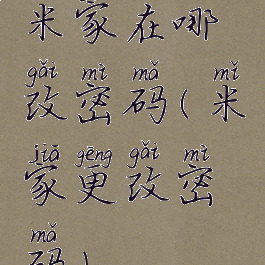 米家在哪
gǎi mì mǎ mǐ
改密码(米
jiā gēng gǎi mì
家更改密
mǎ
码)